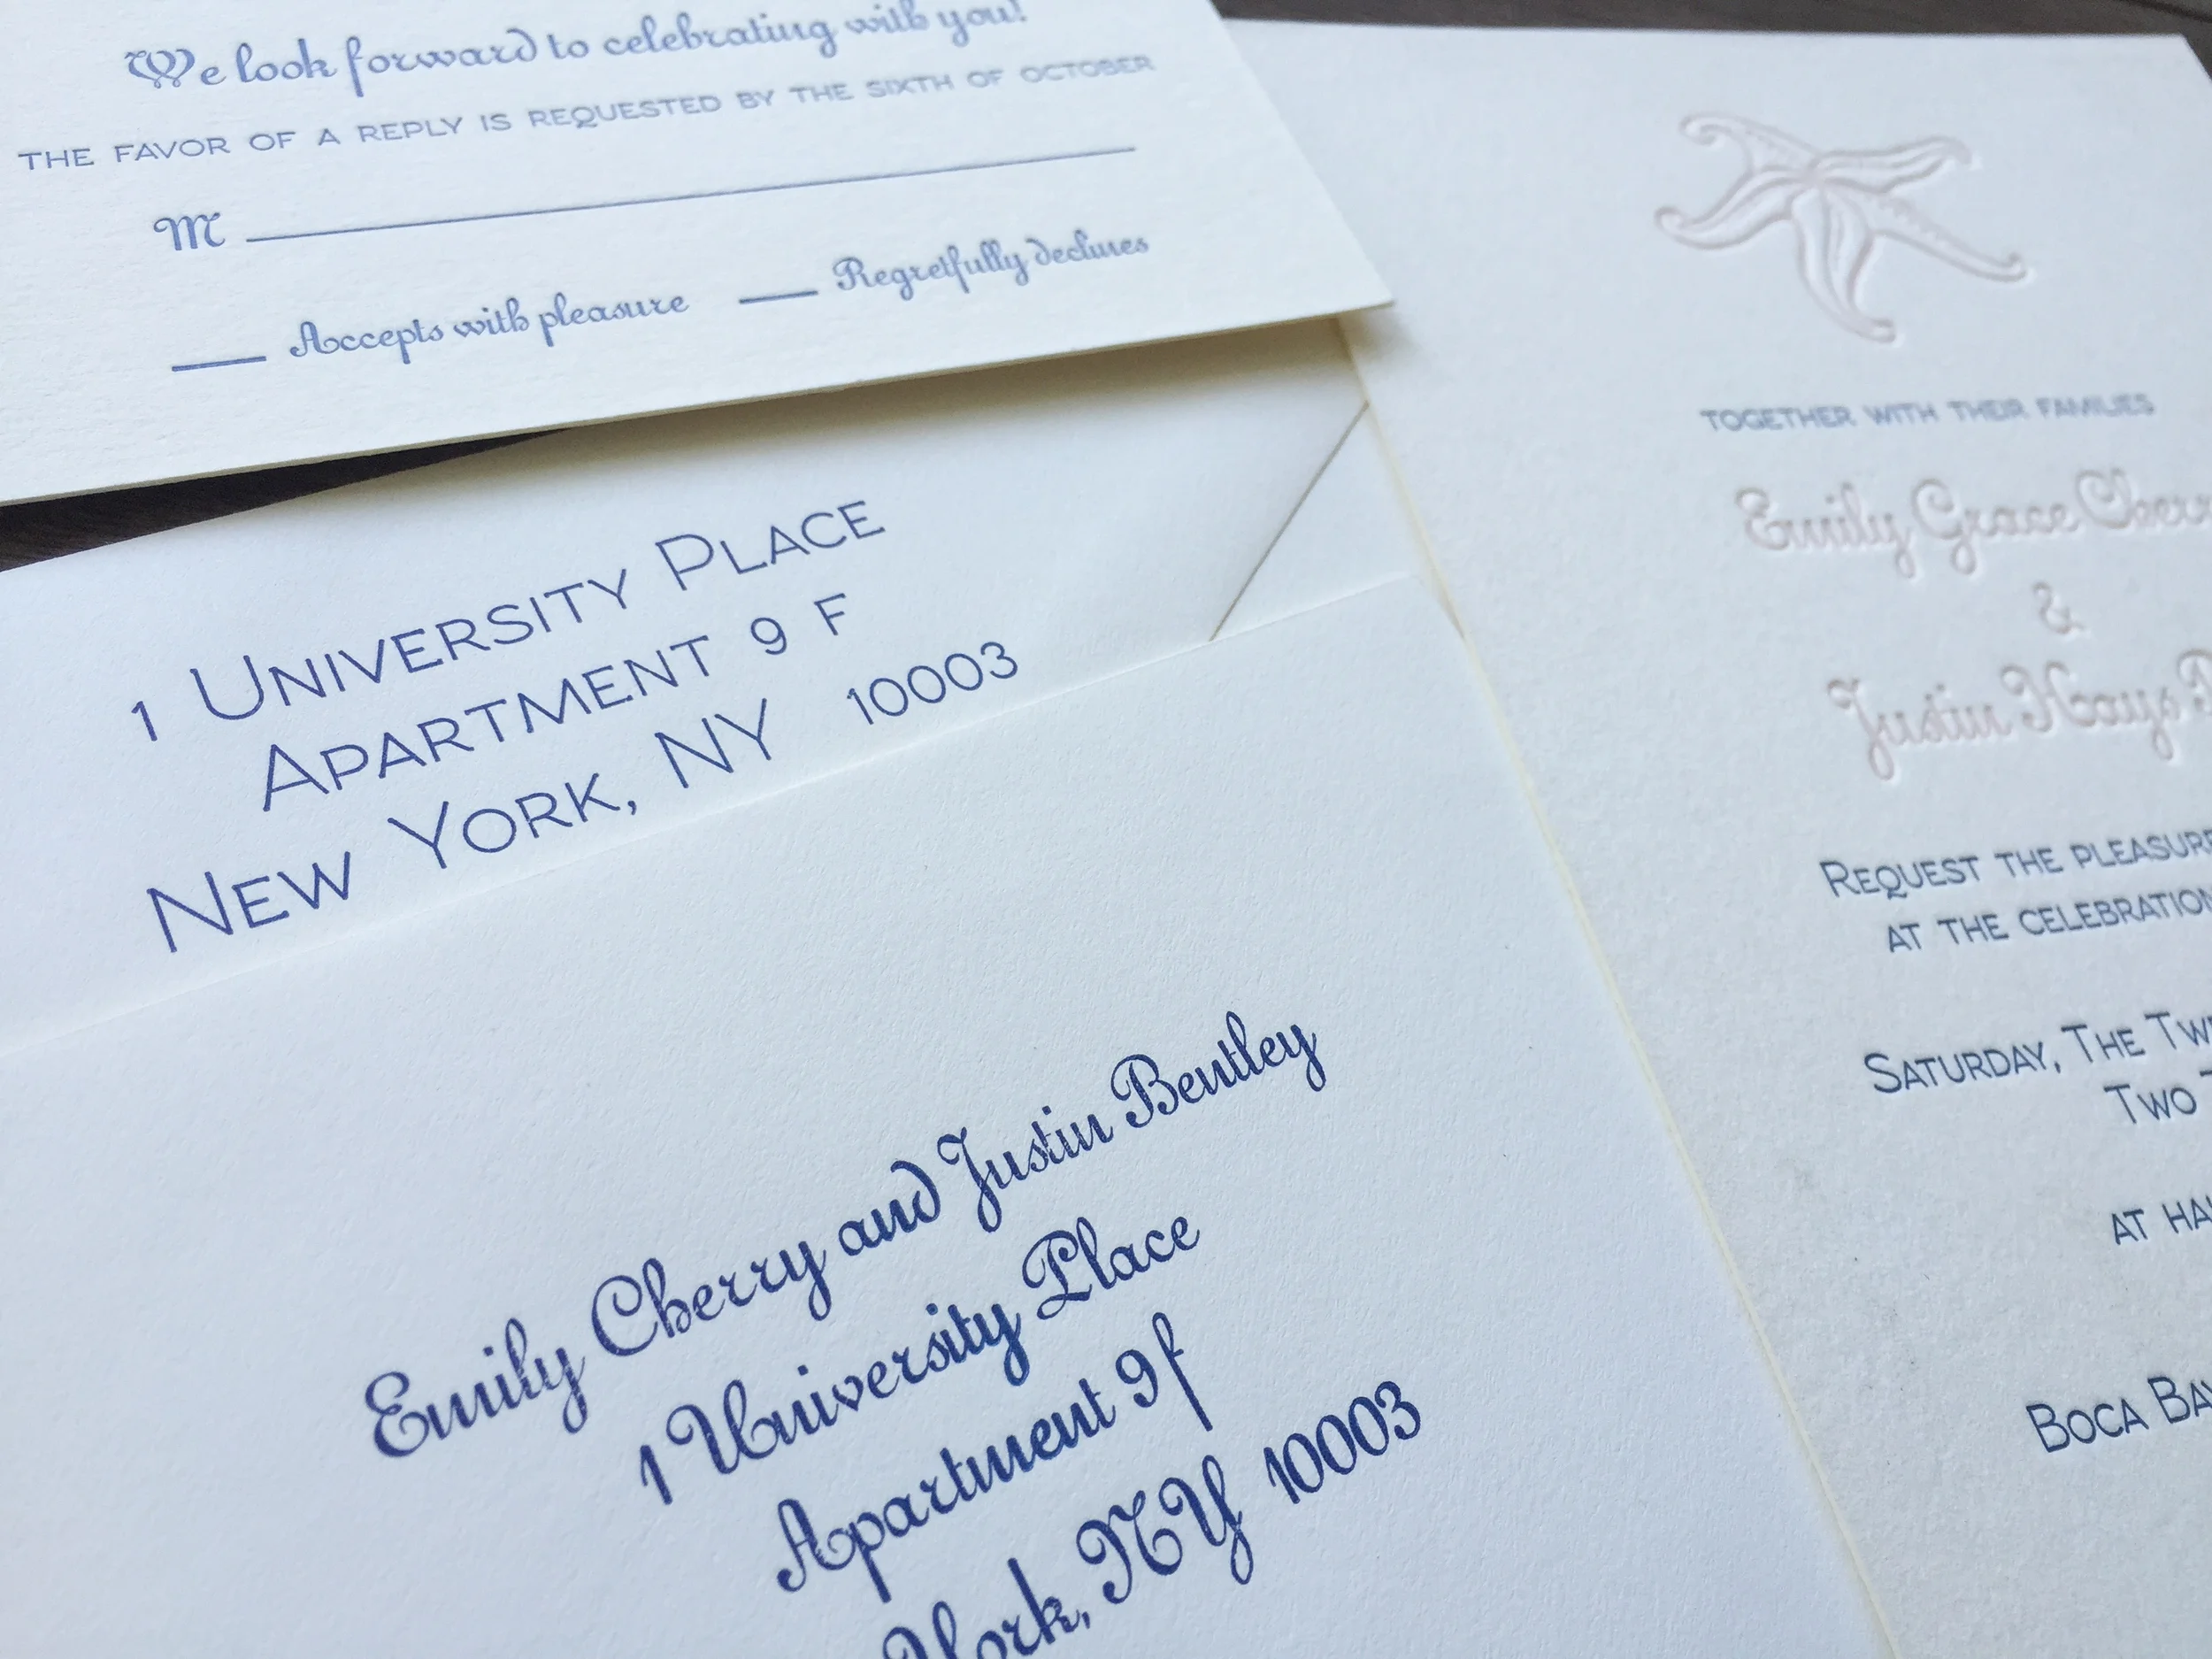 We look forward to celebrating with you!
THE FAVOR OF A REPLY IS REQUESTED BY THE SIXTH OF OCTOBER
M
Accepts with pleasure Regretfully declines
1 UNIVERSITY PLACE
APARTMENT 9 F
NEW YORK, NY 10003
Emily Cherry and Justin Bentley
1 University Place
Apartment 9f
York, NY 10003
TOGETHER WITH THEIR FAMILIES
Emily Grace Cherr
&
Justin Hays B
REQUEST THE PLEASURE
AT THE CELEBRATION
SATURDAY, THE TWE
TWO T
AT HAL
BOCA BAY